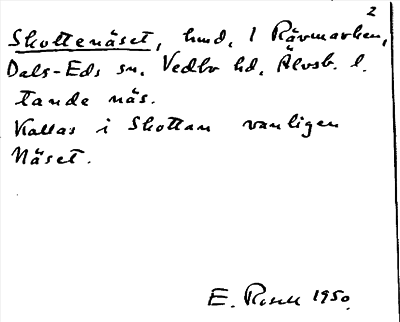 2
Skottenäset, hmd. 1 Rävmarken,
Dals-Eds sn. Vedbo hd. Älvsb. l.
tande näs.
Kallas i Skottan vanligen
Näset.
E. Rosell 1950.